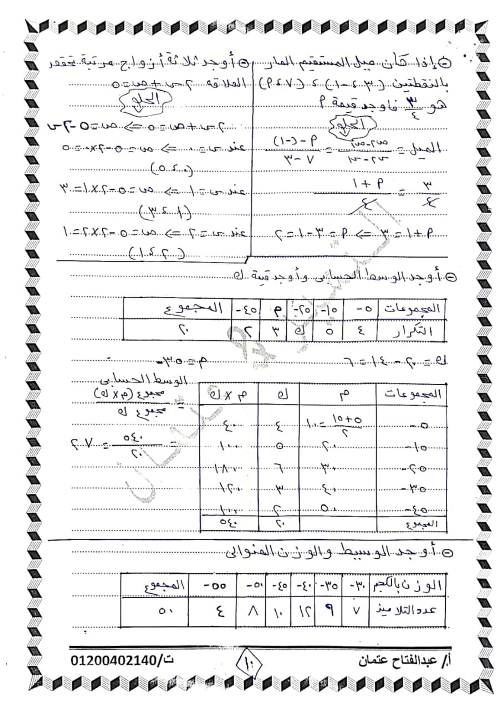 إذا كان ميل المستقيم المار
بالنقطتين (٣، -١)، (٧، م)
هو ٣/٤ فاوجد قيمة م
الحل
الميل = (ص٢-ص١)/(س٢-س١) = (م-(-١))/(٧-٣)
٣/٤ = (م+١)/٤
م+١=٣ => م=٣-١=٢
أوجد ثلاثة أزواج مرتبة تحقق
العلاقة ٢س+ص=٥
الحل
٢س+ص=٥ => ص=٥-٢س
عند س=٠ => ص=٥-٢×٠=٥
(٠،٥)
عند س=١ => ص=٥-٢×١=٣
(١،٣)
عند س=٢ => ص=٥-٢×٢=١
(٢،١)
أوجد الوسط الحسابى وأوجد قيمة ك
المجموعات ٥- ١٥- ٢٥- م ٤٥- المجموع
التكرار ٤ ٥ ك ٣ ٢ ٢٠
ك=٢٠-١٤=٦ م=٣٥-
المجموعات م ك م×ك
٥- (٥+١٥)/٢=١٠ ٤ ٤٠
١٥- ٢٠ ٥ ١٠٠
٢٥- ٣٠ ٦ ١٨٠
٣٥- ٤٠ ٣ ١٢٠
٤٥- ٥٠ ٢ ١٠٠
المجموع ٢٠ ٥٤٠
الوسط الحسابى
= مجموع (م×ك)/مجموع ك
= ٥٤٠/٢٠ = ٢٧
أوجد الوسيط والوزن المنوالى
الوزن بالكجم ٣٠- ٣٥- ٤٠- ٤٥- ٥٠- ٥٥- المجموع
عدد التلاميذ ٧ ٩ ١٢ ١٠ ٨ ٤ ٥٠
أ/ عبدالفتاح عتمان
١٠
ت/01200402140